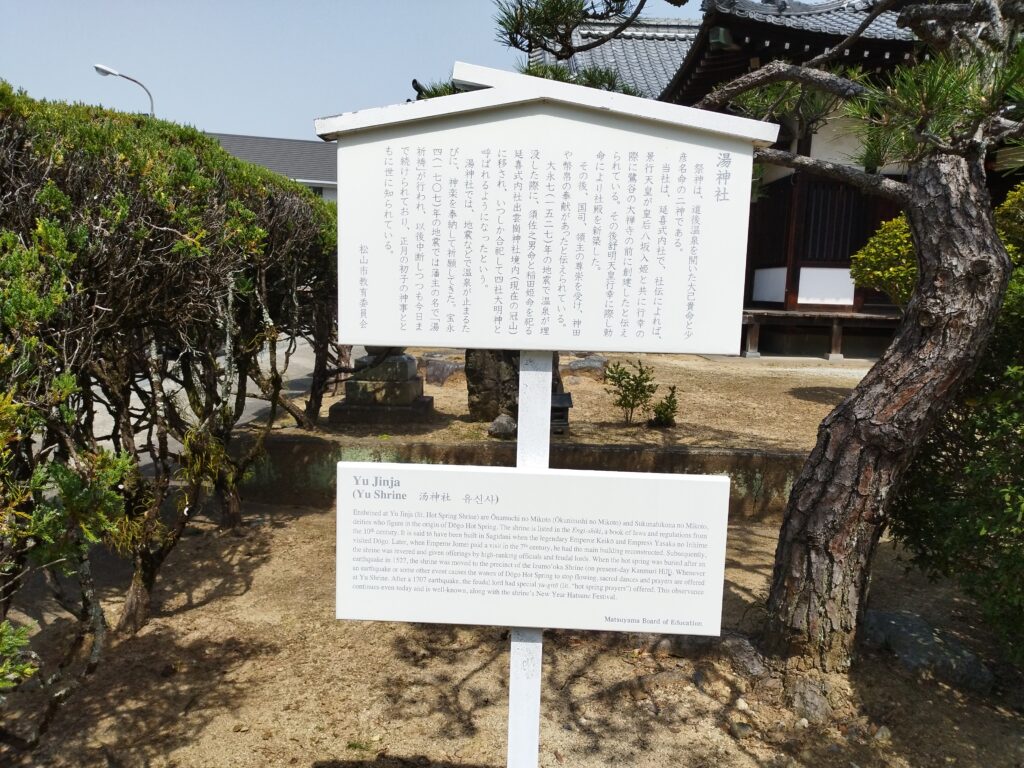 湯神社
祭神は、道後温泉を開いた大己貴命と少
彦名命の二神である。
当社は、延喜式内社で、社伝によれば、
景行天皇が皇后八坂入姫と共に行幸の
際に鷺谷の大禅寺の前に創建したと伝え
られている。その後舒明天皇行幸に際し勅
命により社殿を新築した。
その後、国司、領主の尊崇を受け、神田
や幣帛の奉献があったと伝えられている。
大永七(一五二七)年の地震で温泉が埋
没した際に、須佐之男命と稲田姫命を祀る
延喜式内社出雲崗神社境内(現在の冠山)
に移され、いつしか合祀して四社大明神と
呼ばれるようになったという。
湯神社では、地震などで温泉が止まるた
びに、神楽を奉納して祈願してきた。宝永
四(一七〇七)年の地震では藩主の名で「湯
祈祷」が行われ、以後中断しつつも今日ま
で続けられており、正月の初子の神事とと
もに世に知られている。
松山市教育委員会
Yu Jinja
(Yu Shrine 汤神社 유신사)
Enshrined at Yu Jinja (lit. Hot Spring Shrine) are Ōnamuchi no Mikoto (Ōkuninushi no Mikoto) and Sukunahikona no Mikoto,
deities who figure in the origin of Dōgo Hot Spring. The shrine is listed in the Engi-shiki, a book of laws and regulations from
the 10th century. It is said to have been built in Sagidani when the legendary Emperor Keikō and Empress Yasaka no Irihime
visited Dōgo. Later, when Emperor Jomei paid a visit in the 7th century, he had the main building reconstructed. Subsequently,
the shrine was revered and given offerings by high-ranking officials and feudal lords. When the hot spring was buried after an
earthquake in 1527, the shrine was moved to the precinct of the Izumo'oka Shrine (on present-day Kanmuri Hill). Whenever
an earthquake or some other event causes the waters of Dōgo Hot Spring to stop flowing, sacred dances and prayers are offered
at Yu Shrine. After a 1707 earthquake, the feudal lord had special yu-gitō (lit. "hot spring prayers") offered. This observance
continues even today and is well-known, along with the shrine's New Year Hatsune Festival.
Matsuyama Board of Education